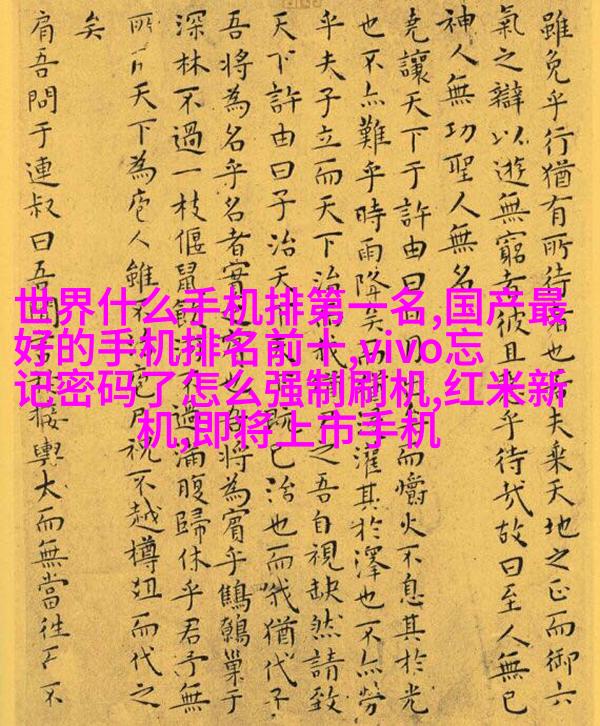 世界什么手机排第一名,国产最
好的手机排名前十,vivo忘
记密码了怎么强制刷机,红米新
机,即将上市手机
雖免乎行猶有所待者也夫乘天地之正而御六
氣之辯以遊無窮者彼且乎待哉故曰至人無己
神人無功聖人無名
堯讓天下于許由曰日而爝火不息其於光
也不亦難乎時雨降矣灌其於澤也不亦勞
乎夫子立而天下治之吾自視缺然請致
天下許由曰子治天既已治也而我猶代子
吾將為名乎名者實之也吾將為賓乎鷦鷯巢于
深林不過一枝偃鼠飲過滿腹歸休乎君予無
所天下為庖人雖不治庖尸祝不越樽俎而代之
矣
肩吾問于連叔曰吾聞接輿大而無當往不